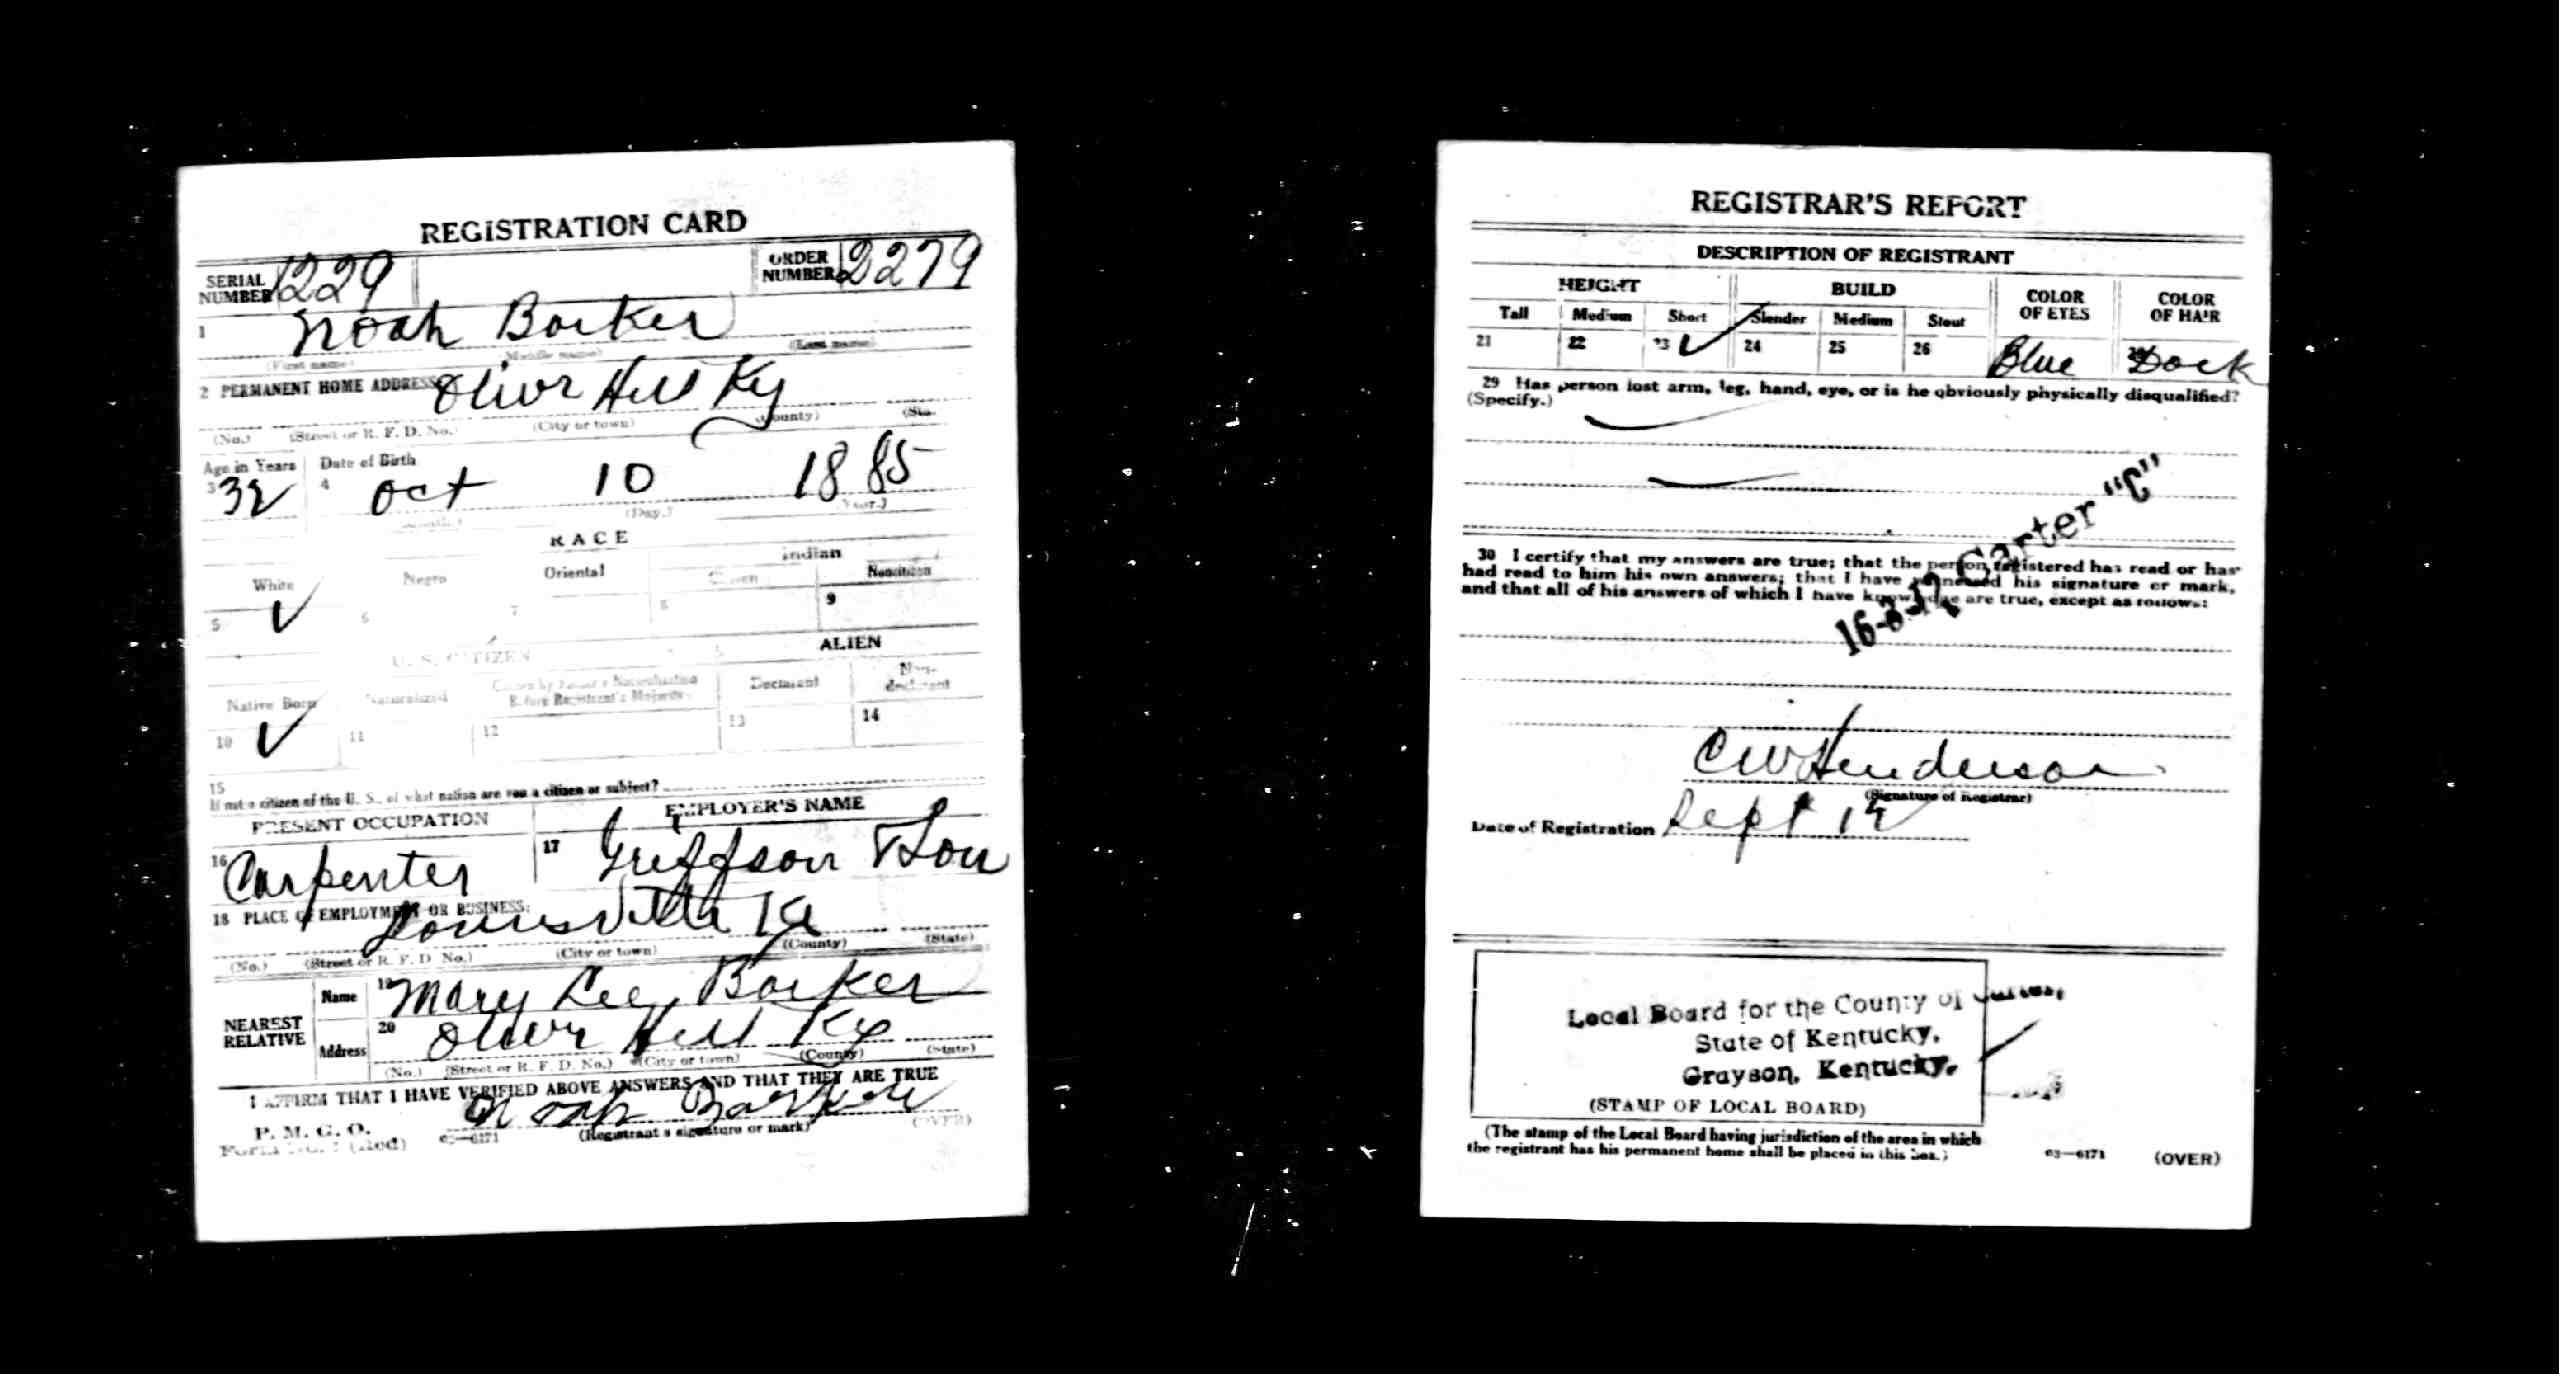 REGISTRATION CARD
SERIAL NUMBER 1229 ORDER NUMBER 2279
1 Noah Barker
(First name) (Middle name) (Last name)
2 PERMANENT HOME ADDRESS Olive Hill Ky
(No.) (Street or R. F. D. No.) (City or town) (County) (Sta.
Age in Years Date of Birth
3 32 4 Oct 10 1885
(Day.) (Year.)
RACE
White Negro Oriental Indian
Citizen Noncitizen
5 ✓ 6 7 8 9
U. S. CITIZEN ALIEN
Native Born Naturalized Citizen by Father's Naturalization Before Registrant's Majority Declarant Non-declarant
10 ✓ 11 12 13 14
15
If not a citizen of the U. S., of what nation are you a citizen or subject?
PRESENT OCCUPATION EMPLOYER'S NAME
16 Carpenter 17 & Son
18 PLACE OF EMPLOYMENT OR BUSINESS:
Louisville
(No.) (Street or R. F. D. No.) (City or town) (County) (State)
NEAREST RELATIVE Name 19 Mary Lee Barker
Address 20 Olive Hill Ky
(No.) (Street or R. F. D. No.) (City or town) (County) (State)
I AFFIRM THAT I HAVE VERIFIED ABOVE ANSWERS AND THAT THEY ARE TRUE
Noah Barker
P. M. G. O.
Form (Red) 03—6171 (Registrant's signature or mark) (OVER)
REGISTRAR'S REPORT
DESCRIPTION OF REGISTRANT
HEIGHT BUILD COLOR OF EYES COLOR OF HAIR
Tall Medium Short Slender Medium Stout
21 22 23 ✓ 24 25 26 Blue Dark
29 Has person lost arm, leg, hand, eye, or is he obviously physically disqualified?
(Specify.)
Carter "C"
30 I certify that my answers are true; that the person registered has read or has
had read to him his own answers; that I have witnessed his signature or mark,
and that all of his answers of which I have knowledge are true, except as follows:
C W Henderson
(Signature of Registrar)
Date of Registration Sept 12
Local Board for the County of Carter,
State of Kentucky,
Grayson, Kentucky.
(STAMP OF LOCAL BOARD)
(The stamp of the Local Board having jurisdiction of the area in which
the registrant has his permanent home shall be placed in this box.)
03—6171 (OVER)